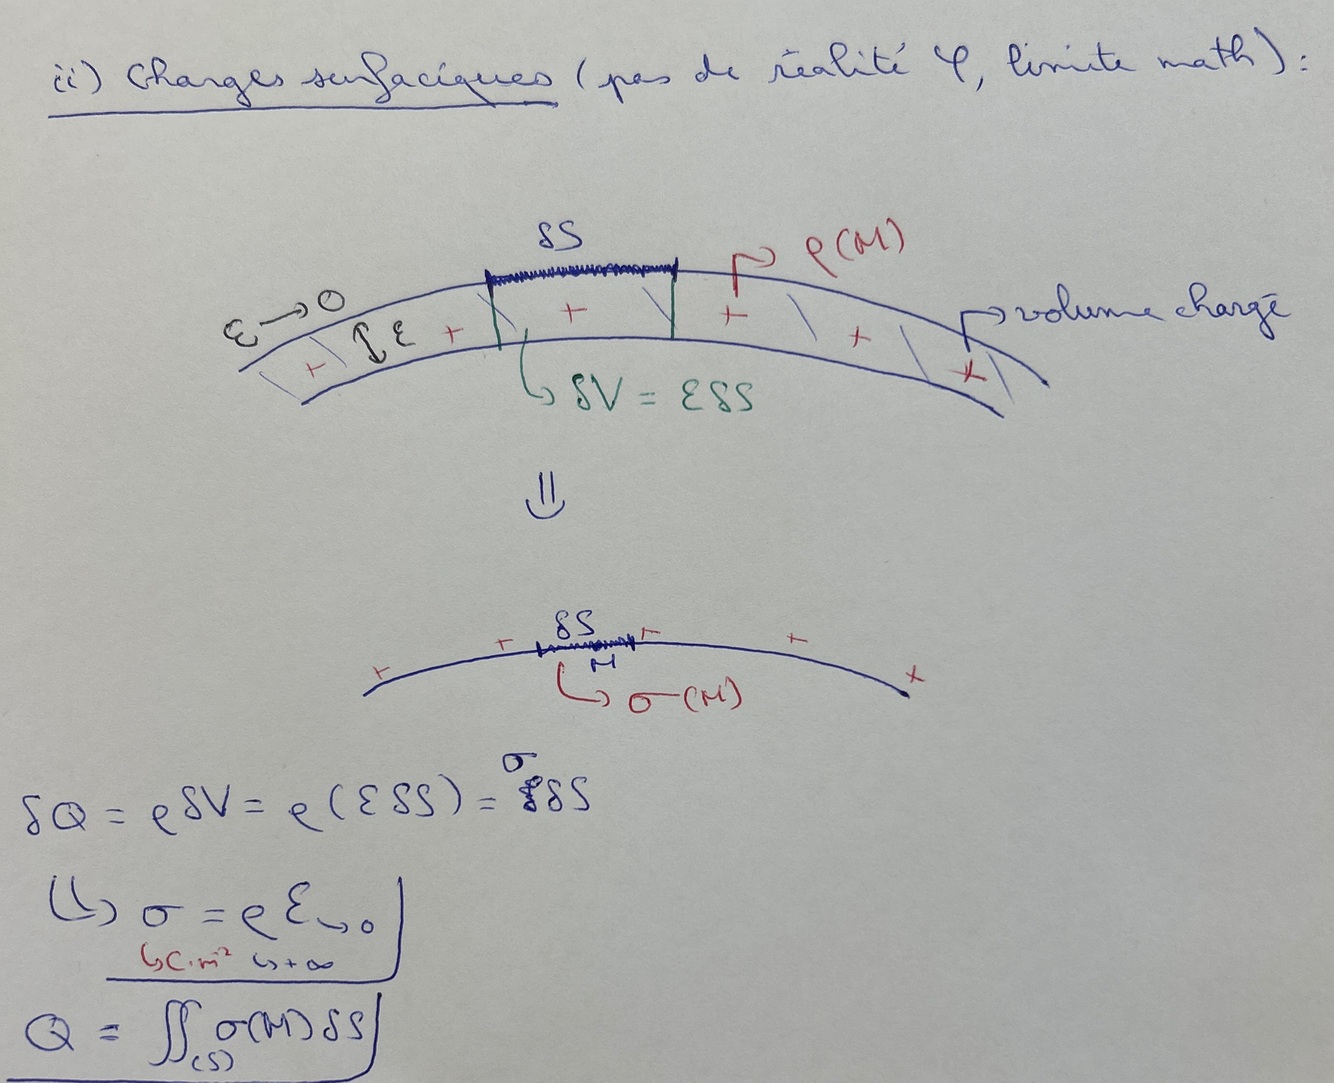 ii) Charges surfaciques (pas de réalité φ, limite math) :
δS
ρ(M)
ε → 0
ε
+ + + + + +
volume chargé
δV = ε δS
⇓
δS
+ + + + +
M
σ(M)
δQ = ρ δV = ρ (ε δS) = σ δS
(↳) σ = ρ ε ↳ 0
↳ C.m⁻² ↳ +∞
Q = ∬(S) σ(M) δS